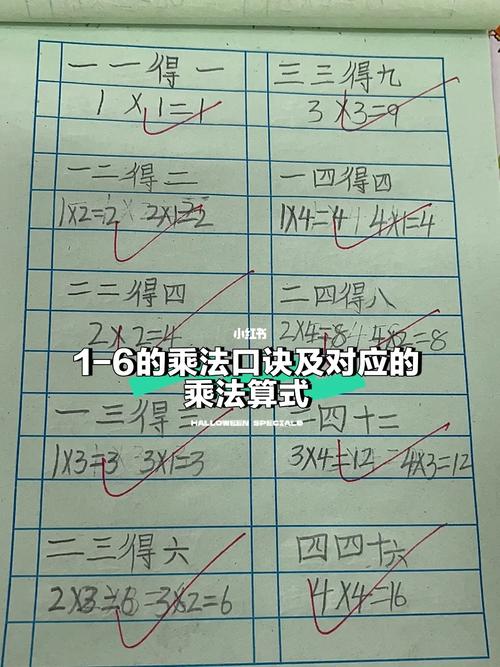 一一得一
1×1=1
一二得二
1×2=2 2×1=2
二二得四
2×2=4
一三得三
1×3=3 3×1=3
二三得六
2×3=6 3×2=6
三三得九
3×3=9
一四得四
1×4=4 4×1=4
二四得八
2×4=8 4×2=8
三四十二
3×4=12 4×3=12
四四十六
4×4=16
小红书
1-6的乘法口诀及对应的
乘法算式
HALLOWEEN SPECIALS